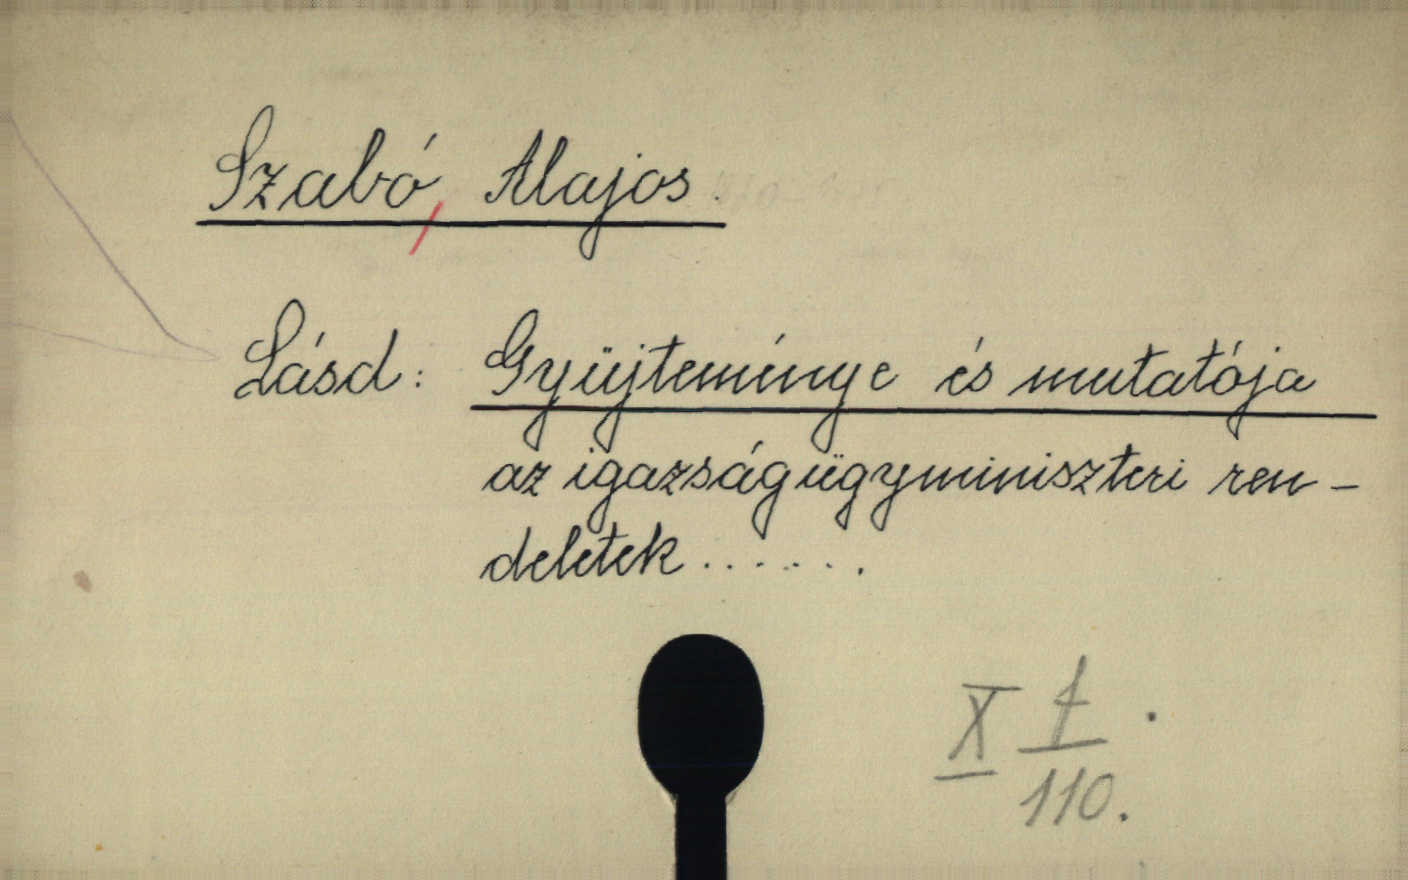 Szabó, Alajos.
Lásd: Gyüjteménye és mutatója
az igazságügyminiszteri ren-
deletek.......
X f/110.